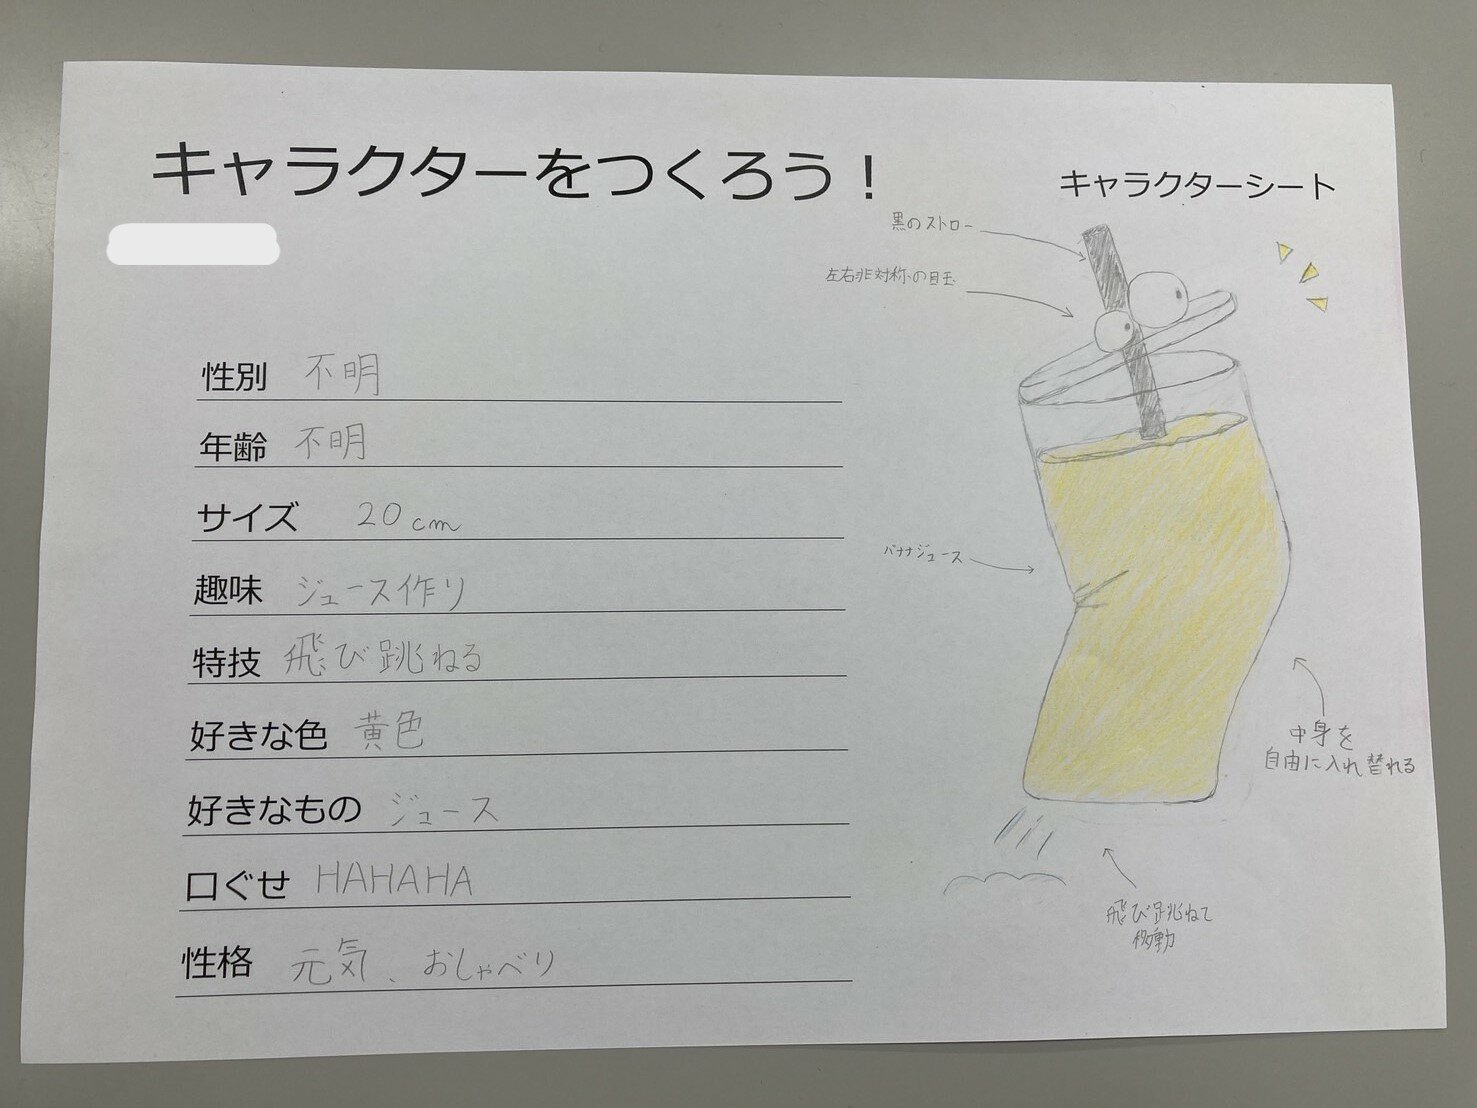 キャラクターをつくろう！
キャラクターシート
黒のストロー
左右非対称の目玉
性別 不明
年齢 不明
サイズ 20cm
趣味 ジュース作り
特技 飛び跳ねる
好きな色 黄色
好きなもの ジュース
口ぐせ HAHAHA
性格 元気、おしゃべり
バナナジュース
中身を
自由に入れ替れる
飛び跳ねて
移動